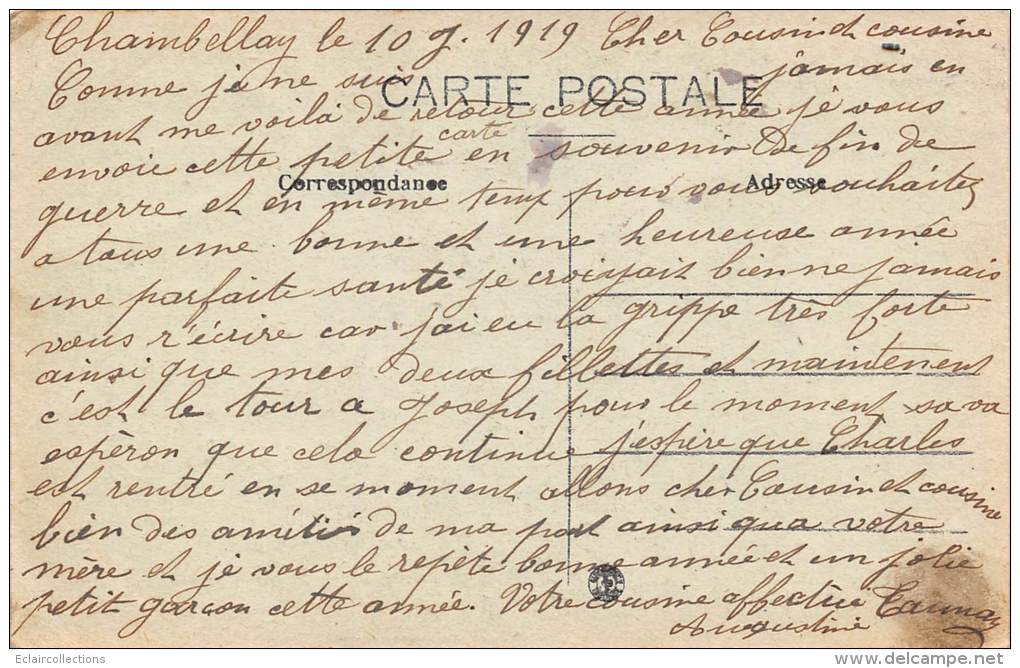 Chambellay le 10 J. 1919 Cher Cousin et cousine
Comme je ne suis jamais en
CARTE POSTALE
avant me voilà de retour cette année je vous
carte
envoie cette petite en souvenir de fin de
Correspondance
Adresse
guerre et en même temp pour vous souhaitez
a tous une bonne et une heureuse année
une parfaite santé je croiyait bien ne jamais
vous r'écrire car j'ai eu la grippe très forte
ainsi que mes deux fillettes et maintenent
c'est le tour a Joseph pour le moment sa va
espèron que cela continue j'espère que Charles
est rentré en se moment allons cher Cousin et cousine
bien des amitiés de ma part ainsi qua votre
mère et je vous le repète bonne année et un jolie
petit garçon cette année. Votre cousine affectue
Augustine
Eclaircollections
www.delcampe.net